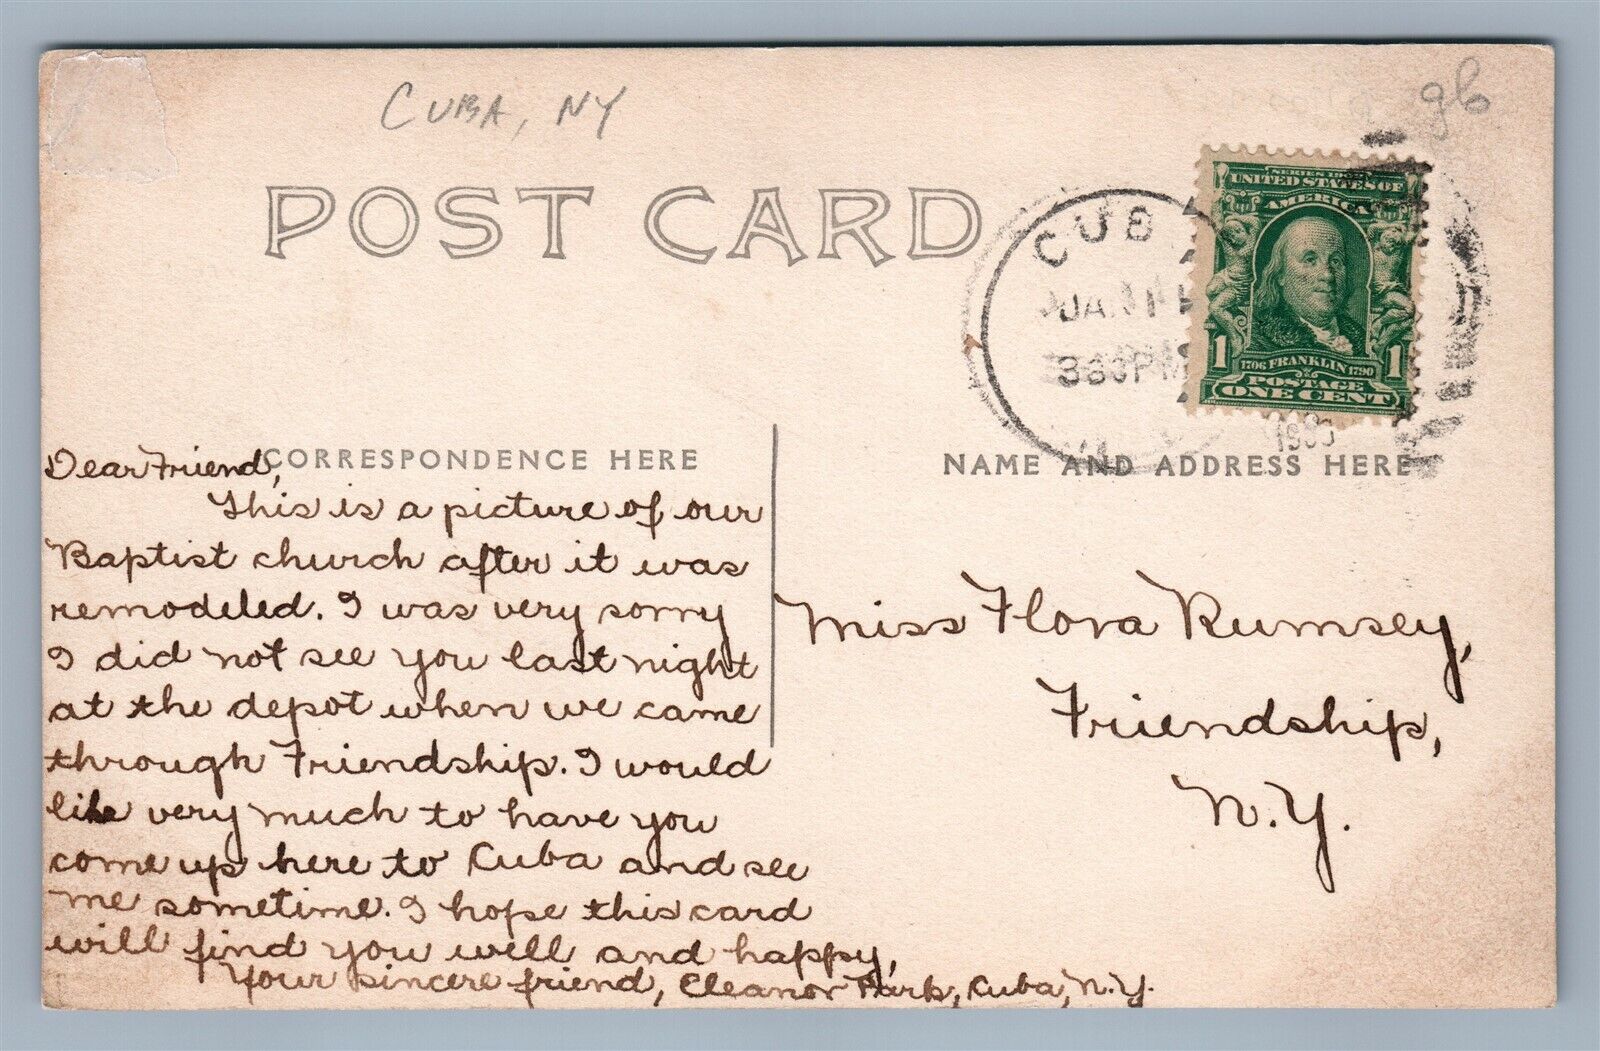 CUBA, NY
96
POST CARD
CUB
JAN 31
330 PM
SERIES 1902
UNITED STATES OF
AMERICA
1 1
1706 FRANKLIN 1790
POSTAGE
ONE CENT
CORRESPONDENCE HERE
NAME AND ADDRESS HERE
Dear Friend,
This is a picture of our
Baptist church after it was
remodeled. I was very sorry
I did not see you last night
at the depot when we came
through Friendship. I would
like very much to have you
come up here to Cuba and see
me sometime. I hope this card
will find you well and happy,
Your sincere friend, Eleanor Park, Cuba, N.Y.
Miss Flora Rumsey,
Friendship,
N.Y.